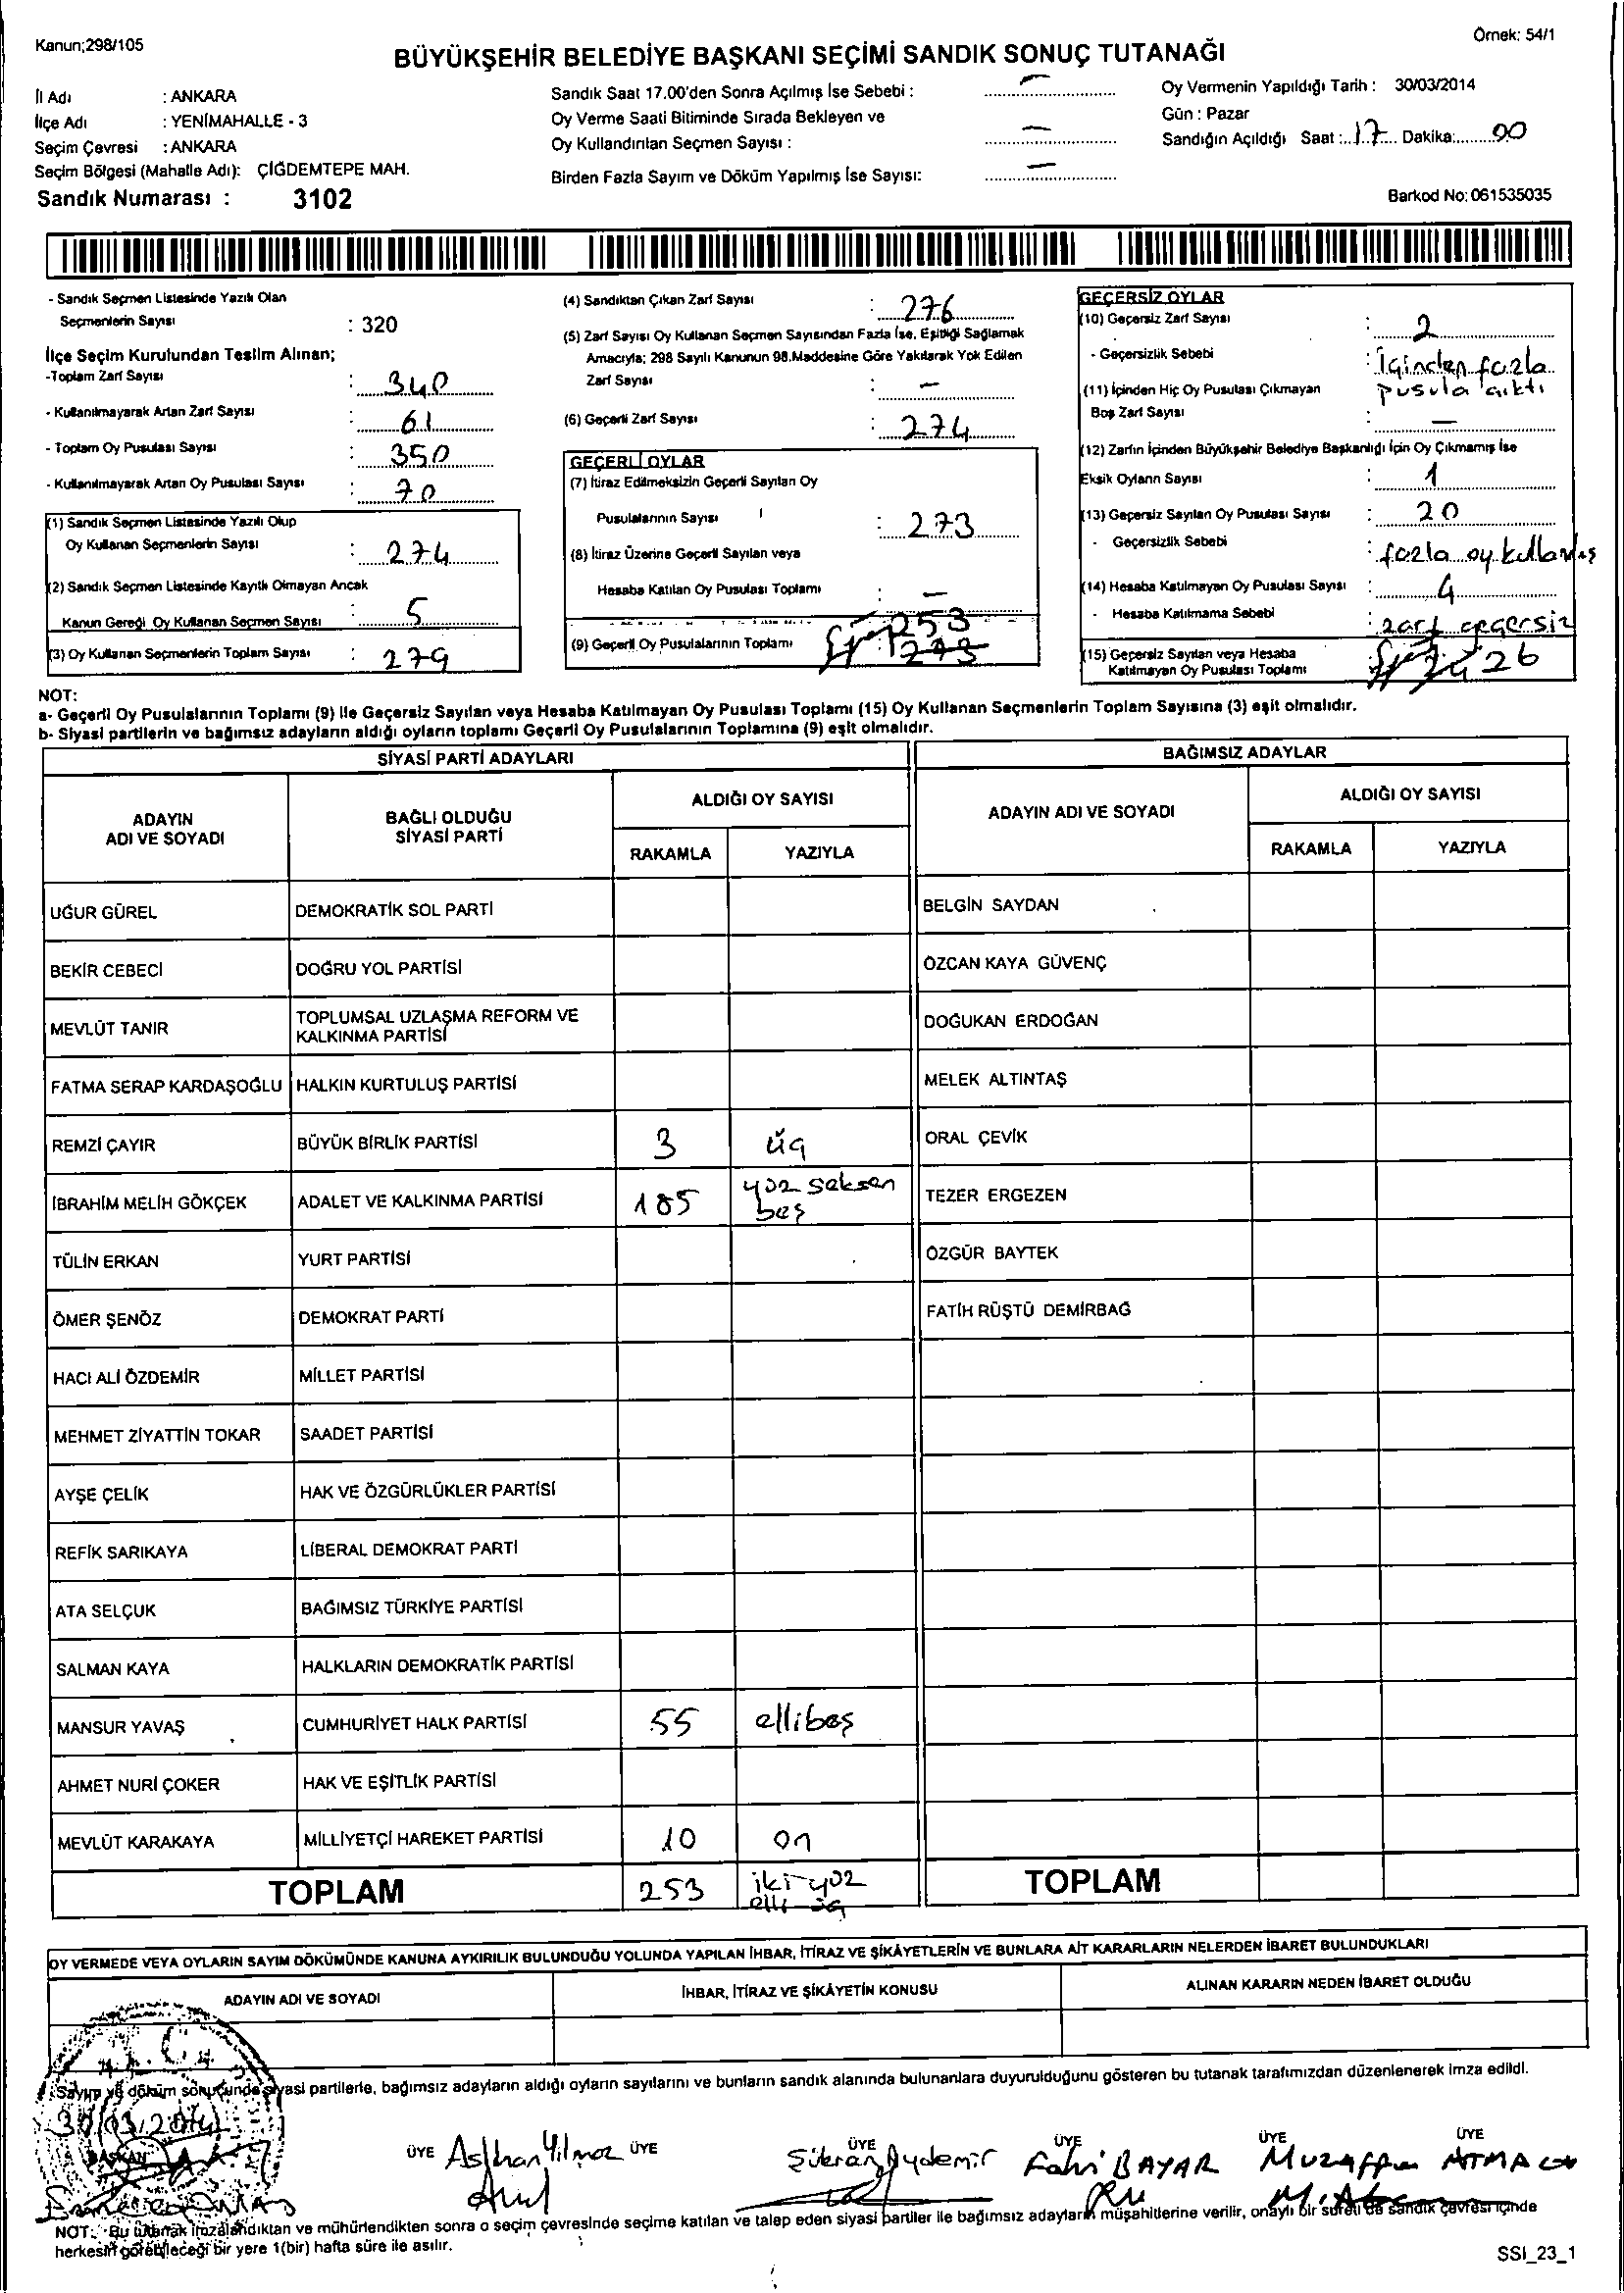 Kanun;298/105
Örnek: 54/1
BÜYÜKŞEHİR BELEDİYE BAŞKANI SEÇİMİ SANDIK SONUÇ TUTANAĞI
İl Adı : ANKARA
İlçe Adı : YENİMAHALLE - 3
Seçim Çevresi : ANKARA
Seçim Bölgesi (Mahalle Adı): ÇİĞDEMTEPE MAH.
Sandık Numarası : 3102
Sandık Saat 17.00'den Sonra Açılmış İse Sebebi : —
Oy Verme Saati Bitiminde Sırada Bekleyen ve
Oy Kullandırılan Seçmen Sayısı : —
Birden Fazla Sayım ve Döküm Yapılmış İse Sayısı: —
Oy Vermenin Yapıldığı Tarih : 30/03/2014
Gün : Pazar
Sandığın Açıldığı Saat : 17 Dakika: 00
Barkod No: 061535035
- Sandık Seçmen Listesinde Yazılı Olan
Seçmenlerin Sayısı : 320
İlçe Seçim Kurulundan Teslim Alınan;
-Toplam Zarf Sayısı : 340
- Kullanılmayarak Artan Zarf Sayısı : 61
- Toplam Oy Pusulası Sayısı : 350
- Kullanılmayarak Artan Oy Pusulası Sayısı : 70
(1) Sandık Seçmen Listesinde Yazılı Olup
Oy Kullanan Seçmenlerin Sayısı : 274
(2) Sandık Seçmen Listesinde Kayıtlı Olmayan Ancak
Kanun Gereği Oy Kullanan Seçmen Sayısı : 5
(3) Oy Kullanan Seçmenlerin Toplam Sayısı : 279
(4) Sandıktan Çıkan Zarf Sayısı : 276
(5) Zarf Sayısı Oy Kullanan Seçmen Sayısından Fazla İse, Eşitliği Sağlamak
Amacıyla; 298 Sayılı Kanunun 98.Maddesine Göre Yakılarak Yok Edilen
Zarf Sayısı : —
(6) Geçerli Zarf Sayısı : 274
GEÇERLİ OYLAR
(7) İtiraz Edilmeksizin Geçerli Sayılan Oy
Pusulalarının Sayısı : 273
(8) İtiraz Üzerine Geçerli Sayılan veya
Hesaba Katılan Oy Pusulası Toplamı : —
253
(9) Geçerli Oy Pusulalarının Toplamı : 273
GEÇERSİZ OYLAR
(10) Geçersiz Zarf Sayısı : 2
- Geçersizlik Sebebi : içinden fazla
pusula çıktı
(11) İçinden Hiç Oy Pusulası Çıkmayan
Boş Zarf Sayısı : —
(12) Zarfın İçinden Büyükşehir Belediye Başkanlığı İçin Oy Çıkmamış İse
Eksik Oyların Sayısı : 1
(13) Geçersiz Sayılan Oy Pusulası Sayısı : 20
- Geçersizlik Sebebi : fazla oy kullanmış
(14) Hesaba Katılmayan Oy Pusulası Sayısı : 4
- Hesaba Katılmama Sebebi : zarf geçersiz
(15) Geçersiz Sayılan veya Hesaba
Katılmayan Oy Pusulası Toplamı : 26
NOT:
a- Geçerli Oy Pusulalarının Toplamı (9) ile Geçersiz Sayılan veya Hesaba Katılmayan Oy Pusulası Toplamı (15) Oy Kullanan Seçmenlerin Toplam Sayısına (3) eşit olmalıdır.
b- Siyasi partilerin ve bağımsız adayların aldığı oyların toplamı Geçerli Oy Pusulalarının Toplamına (9) eşit olmalıdır.
SİYASİ PARTİ ADAYLARI
BAĞIMSIZ ADAYLAR
ADAYIN
ADI VE SOYADI
BAĞLI OLDUĞU
SİYASİ PARTİ
ALDIĞI OY SAYISI
RAKAMLA YAZIYLA
ADAYIN ADI VE SOYADI
ALDIĞI OY SAYISI
RAKAMLA YAZIYLA
UĞUR GÜREL DEMOKRATİK SOL PARTİ BELGİN SAYDAN
BEKİR CEBECİ DOĞRU YOL PARTİSİ ÖZCAN KAYA GÜVENÇ
MEVLÜT TANIR TOPLUMSAL UZLAŞMA REFORM VE
KALKINMA PARTİSİ DOĞUKAN ERDOĞAN
FATMA SERAP KARDAŞOĞLU HALKIN KURTULUŞ PARTİSİ MELEK ALTINTAŞ
REMZİ ÇAYIR BÜYÜK BİRLİK PARTİSİ 3 üç ORAL ÇEVİK
İBRAHİM MELİH GÖKÇEK ADALET VE KALKINMA PARTİSİ 185 yüz seksen
beş TEZER ERGEZEN
TÜLİN ERKAN YURT PARTİSİ ÖZGÜR BAYTEK
ÖMER ŞENÖZ DEMOKRAT PARTİ FATİH RÜŞTÜ DEMİRBAĞ
HACI ALİ ÖZDEMİR MİLLET PARTİSİ
MEHMET ZİYATTİN TOKAR SAADET PARTİSİ
AYŞE ÇELİK HAK VE ÖZGÜRLÜKLER PARTİSİ
REFİK SARIKAYA LİBERAL DEMOKRAT PARTİ
ATA SELÇUK BAĞIMSIZ TÜRKİYE PARTİSİ
SALMAN KAYA HALKLARIN DEMOKRATİK PARTİSİ
MANSUR YAVAŞ CUMHURİYET HALK PARTİSİ 55 ellibeş
AHMET NURİ ÇOKER HAK VE EŞİTLİK PARTİSİ
MEVLÜT KARAKAYA MİLLİYETÇİ HAREKET PARTİSİ 10 on
TOPLAM 253 iki yüz
elli üç TOPLAM
OY VERMEDE VEYA OYLARIN SAYIM DÖKÜMÜNDE KANUNA AYKIRILIK BULUNDUĞU YOLUNDA YAPILAN İHBAR, İTİRAZ VE ŞİKÂYETLERİN VE BUNLARA AİT KARARLARIN NELERDEN İBARET BULUNDUKLARI
ADAYIN ADI VE SOYADI İHBAR, İTİRAZ VE ŞİKÂYETİN KONUSU ALINAN KARARIN NEDEN İBARET OLDUĞU
T.C.
Sayım ve döküm sonucunda siyasi partilerle, bağımsız adayların aldığı oyların sayılarını ve bunların sandık alanında bulunanlara duyurulduğunu gösteren bu tutanak tarafımızdan düzenlenerek imza edildi.
30/03/2014
BAŞKAN ÜYE ÜYE ÜYE ÜYE ÜYE ÜYE
Aslıhan Yılmaz Şükran Aydemir Fahri BAYAR Muzaffer ATMACA
NOT: Bu tutanak imzalandıktan ve mühürlendikten sonra o seçim çevresinde seçime katılan ve talep eden siyasi partiler ile bağımsız adayların müşahitlerine verilir, onaylı bir sureti de sandık çevresi içinde
herkesin görebileceği bir yere 1(bir) hafta süre ile asılır.
SSI_23_1